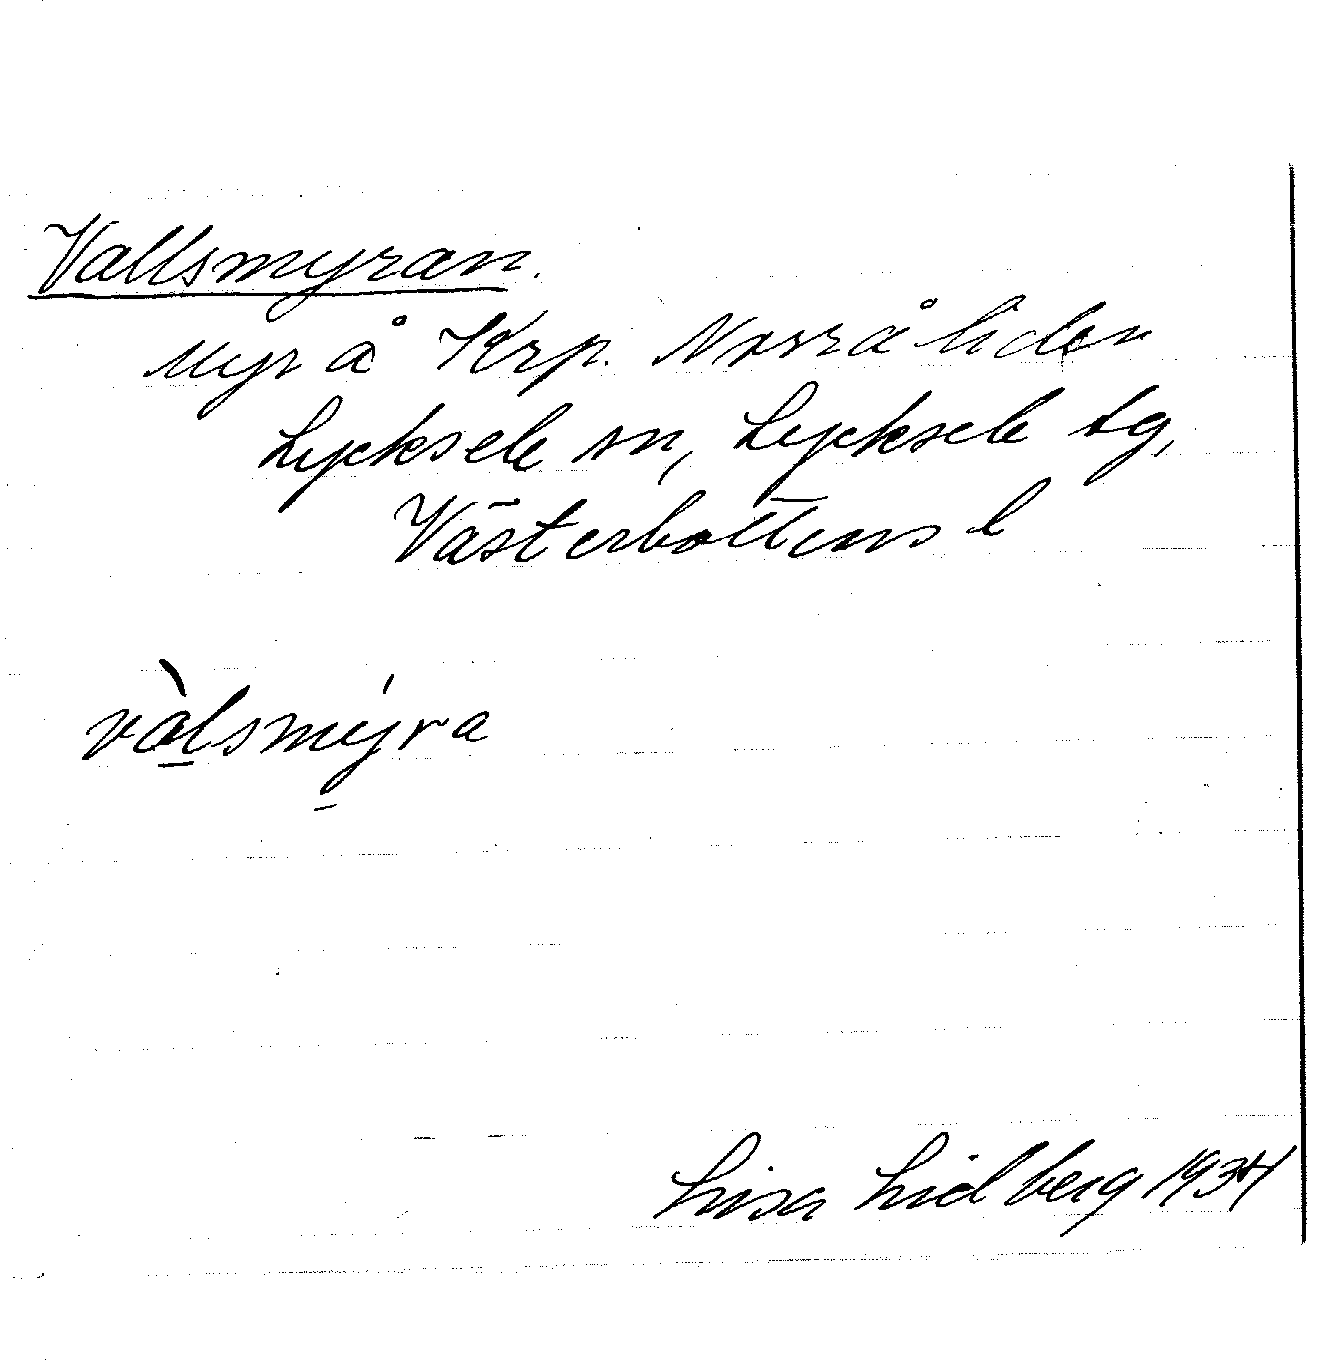 Vallsmyran.
myr å Krp. Norrå liden
Lycksele sn, Lycksele tg,
Västerbottens l
vàlsmýra
Lisa Lidberg 1934